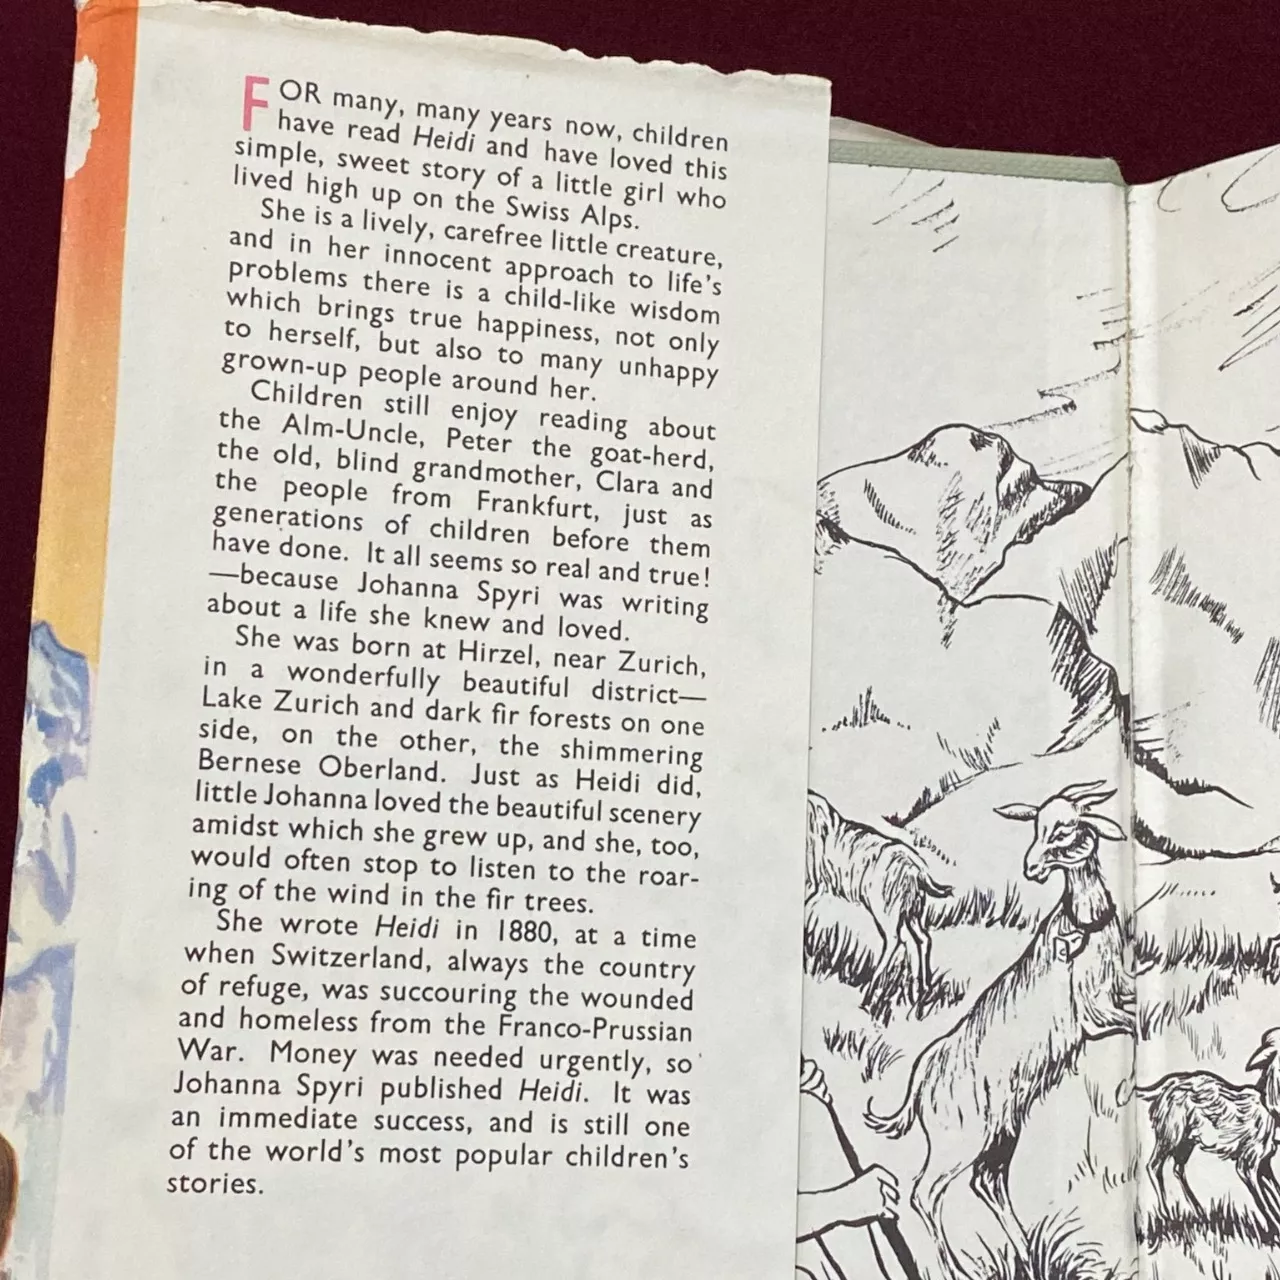 FOR many, many years now, children
have read Heidi and have loved this
simple, sweet story of a little girl who
lived high up on the Swiss Alps.
She is a lively, carefree little creature,
and in her innocent approach to life's
problems there is a child-like wisdom
which brings true happiness, not only
to herself, but also to many unhappy
grown-up people around her.
Children still enjoy reading about
the Alm-Uncle, Peter the goat-herd,
the old, blind grandmother, Clara and
the people from Frankfurt, just as
generations of children before them
have done. It all seems so real and true!
—because Johanna Spyri was writing
about a life she knew and loved.
She was born at Hirzel, near Zurich,
in a wonderfully beautiful district—
Lake Zurich and dark fir forests on one
side, on the other, the shimmering
Bernese Oberland. Just as Heidi did,
little Johanna loved the beautiful scenery
amidst which she grew up, and she, too,
would often stop to listen to the roar-
ing of the wind in the fir trees.
She wrote Heidi in 1880, at a time
when Switzerland, always the country
of refuge, was succouring the wounded
and homeless from the Franco-Prussian
War. Money was needed urgently, so
Johanna Spyri published Heidi. It was
an immediate success, and is still one
of the world's most popular children's
stories.